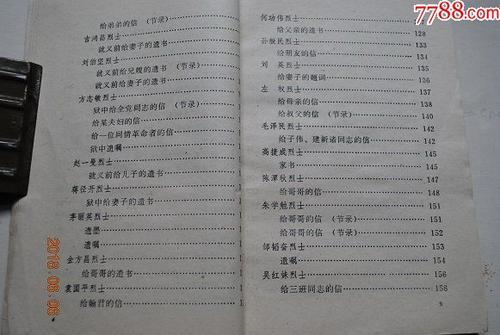 给弟弟的信（节录）
吉鸿昌烈士
就义前给妻子的遗书
刘伯坚烈士
就义前给兄嫂的遗书（节录）
就义前给妻子的遗书（节录）
方志敏烈士
狱中给全党同志的信（节录）
给某夫妇的信
给一位同情革命者的信
狱中遗嘱
赵一曼烈士
就义前给儿子的遗书
蒋径开烈士
狱中给妻子的遗书
李丽英烈士
遗墨
遗嘱
金方昌烈士
给哥哥的遗书
袁国平烈士
给翰君的信
4
何功伟烈士
给父亲的遗书 128
133
给朋友的信 133
刘 英烈士 135
给妻子的题词 136
左 权烈士 137
给母亲的信 138
给叔父的信（节录） 140
毛泽民烈士 142
给子伟、建新诸同志的信 142
高捷成烈士 145
家书 145
陈潭秋烈士 147
给哥哥的信 147
朱学勉烈士 151
给哥哥的信（节录） 151
给哥哥的信（节录） 153
邹韬奋烈士 154
遗嘱 154
吴红妹烈士 156
给三班同志的信 156
5
7788.com
2018.06.06